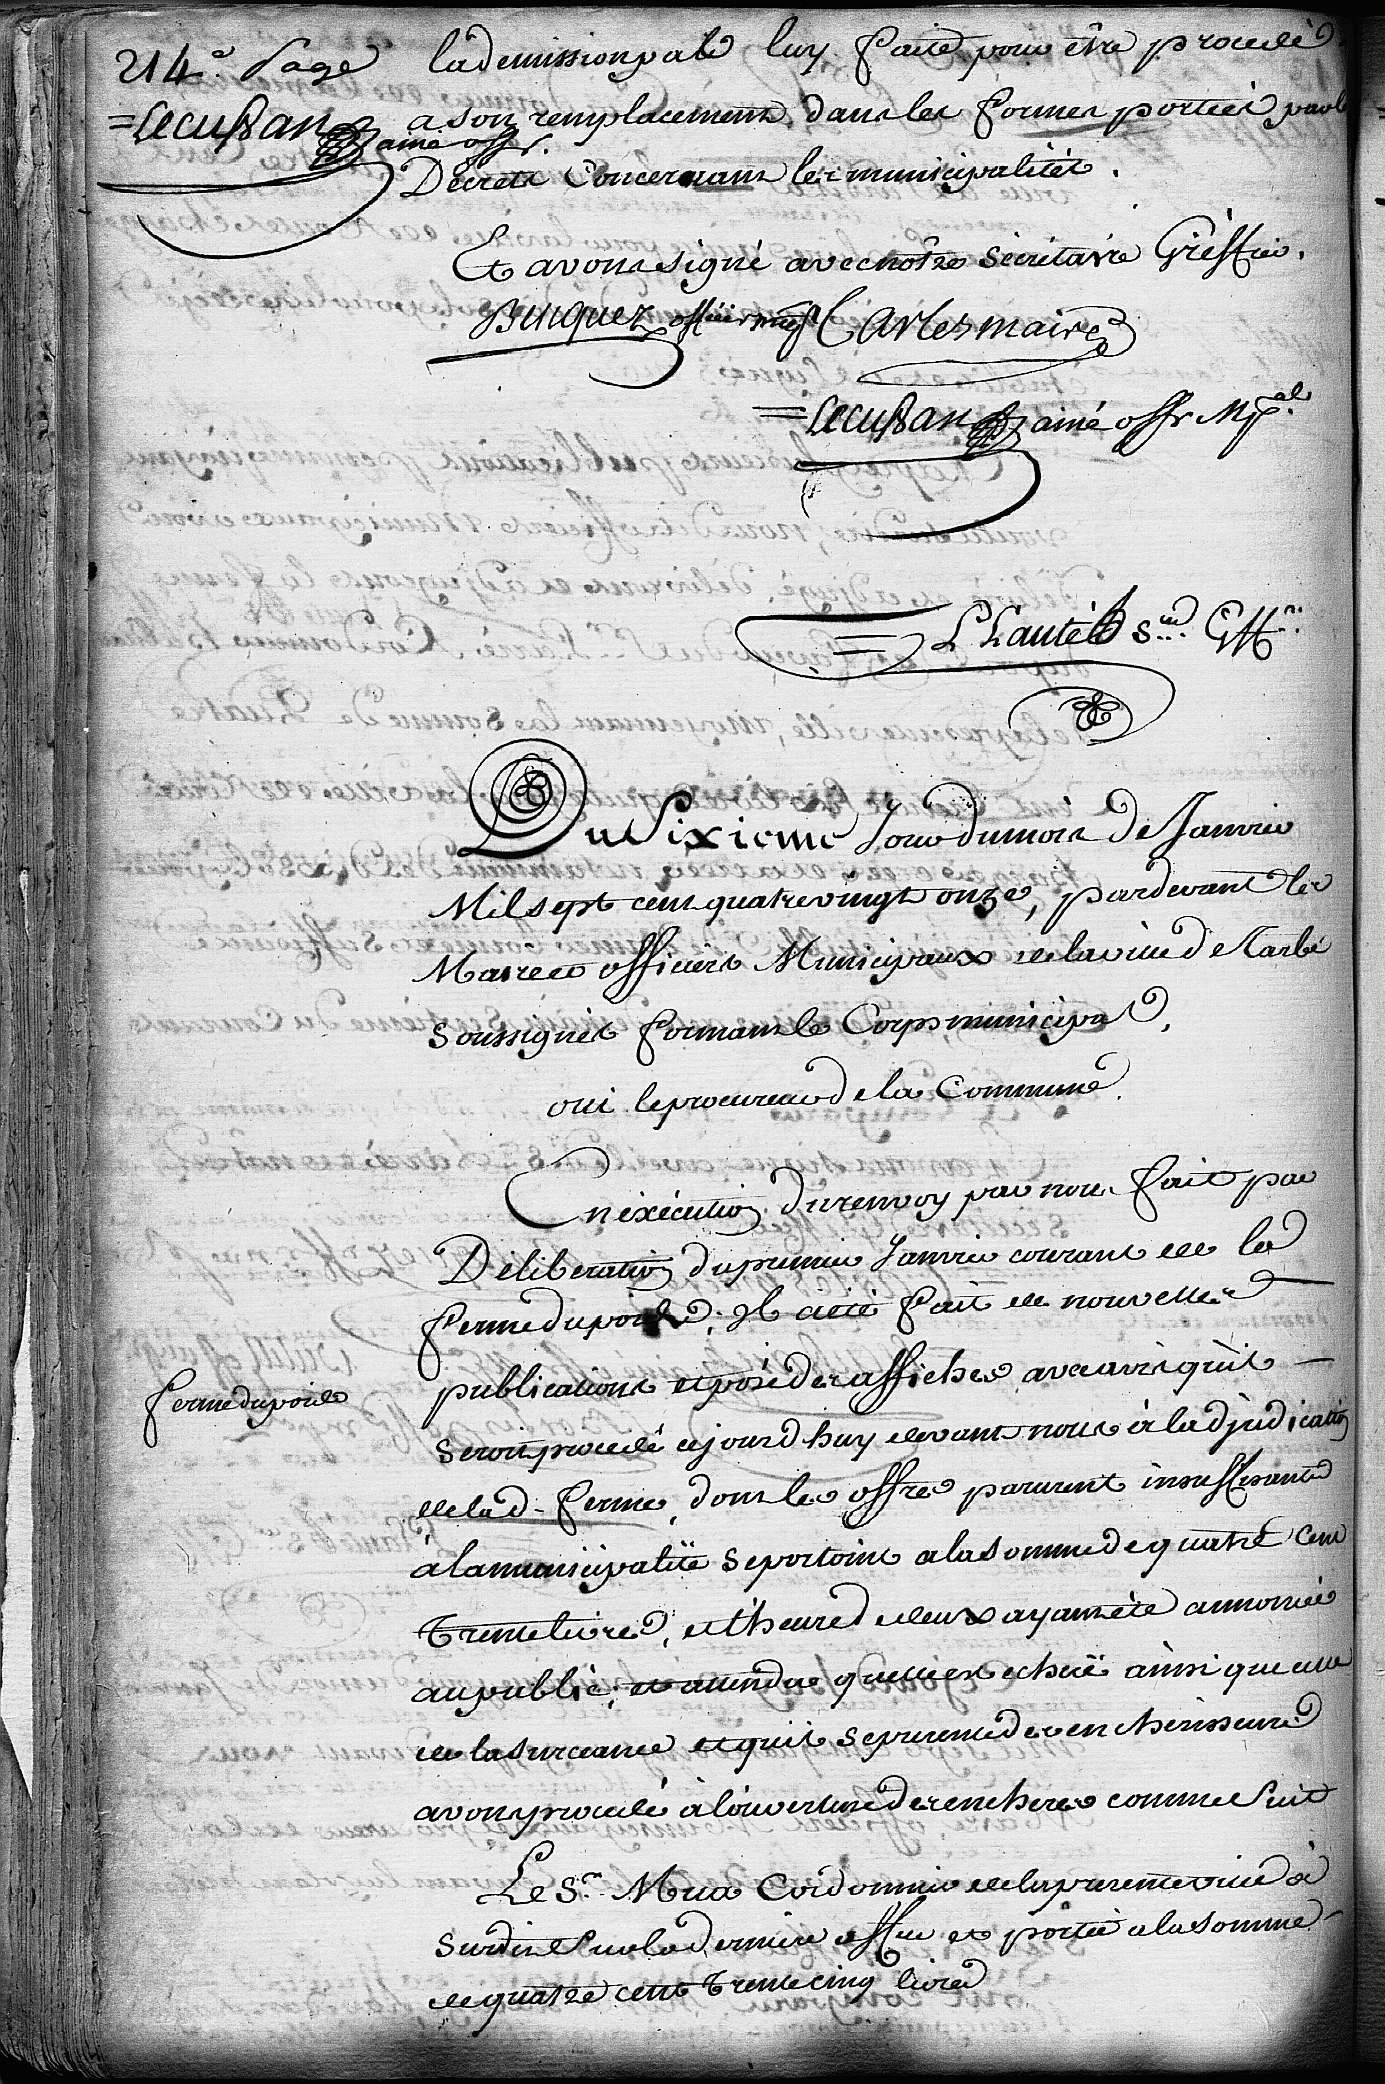 214.e Page
=Lecussan ainé offr.
la demission par luy faite pour être procedé
a son remplacement dans les formes portées par le
Decret Concernant les municipalités.
Et avons signé avec nôtre sécrétaire Gréffier.
officier mpl Carles maire
=Lecussan ainé offr Mpal.
=Lhauté S.re Gffr.
Du Sixieme Jour du mois de Janvier
Mil sept cent quatre vingt onze, pardevant les
Maire et officiers Municipaux de la ville de Tarbe
soussignés formant le Corps municipal,
oui le procureur de la Commune.
En éxécution du renvoy par nous fait par
Déliberation du premier Janvier courant de la
ferme du poids, Il a eté fait de nouvelles
ferme du poids
publications et posé des affiches avec avis qu'il
seroit procedé cejourd'huy devant nous à l'adjudication
de lad. ferme, dont les offres parurent insuffisantes
à la municipalité se portoint a la somme de quatre cent
Trente livres, et l'heure d'elleux ayant été annoncée
au public, et attendu qu'elle est echuë ainsi que celle
de la surceance et qu'il se presente des encherisseurs
avons procedé à l'ouverture des encheres comme suit
Le Sr. Mua Cordonnier de la presente ville à
surdit sur la derniere offre et portée a la somme
de quatre cent Trente cinq livres